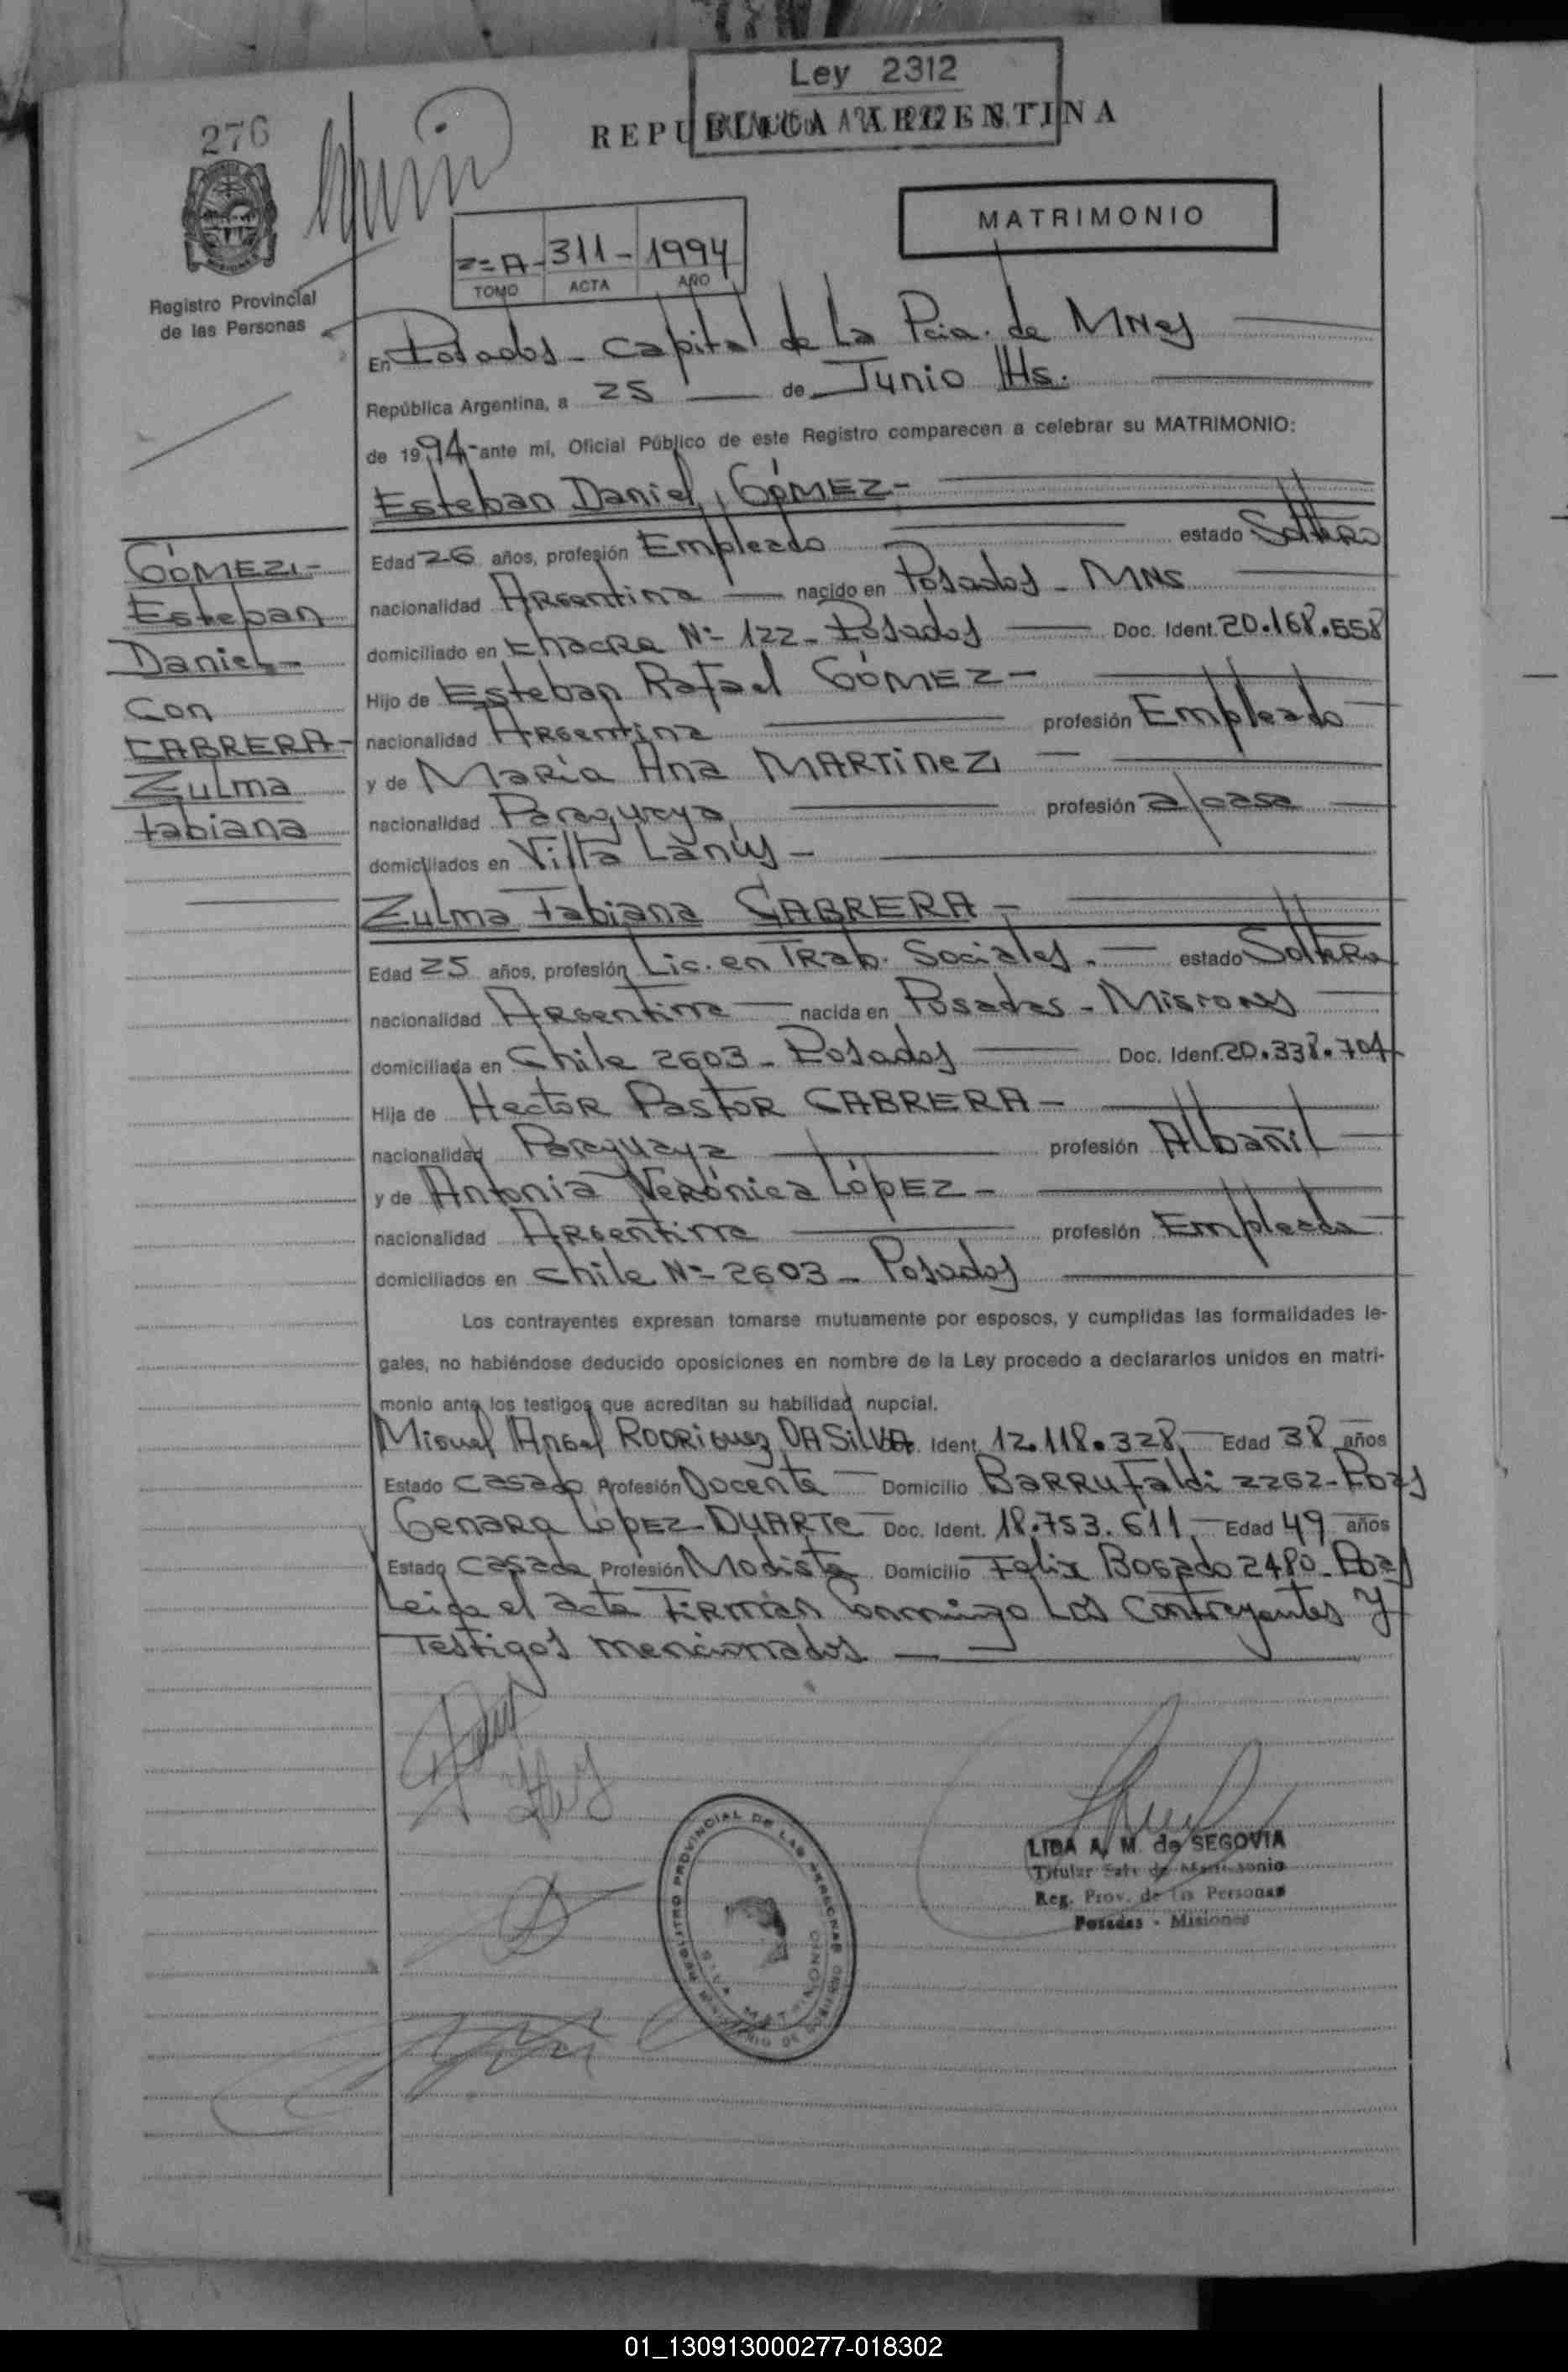 Ley 2312
REPUBLICA ARGENTINA
276
MATRIMONIO
2=A-311-1994
TOMO ACTA AÑO
Registro Provincial
de las Personas
En Posadas - Capital de La Pcia. de MNes
República Argentina, a 25 de Junio Hs.
de 1994 - ante mí, Oficial Público de este Registro comparecen a celebrar su MATRIMONIO:
Esteban Daniel, GÓMEZ -
Edad 26 años, profesión Empleado estado Soltero
nacionalidad Argentina nacido en Posadas - MNS
domiciliado en Chacra Nº 122 - Posadas Doc. Ident. 20.168.558
Hijo de Esteban Rafael GÓMEZ -
nacionalidad Argentina profesión Empleado
y de María Ana MARTINEZ
nacionalidad Paraguaya profesión a/casa
domiciliados en Villa Lanús -
GÓMEZ -
Esteban
Daniel -
Con
CABRERA -
Zulma
Fabiana
Zulma Fabiana CABRERA -
Edad 25 años, profesión Lic. en Trab. Sociales. - estado Soltera
nacionalidad Argentina nacida en Posadas - Misiones
domiciliada en Chile 2603 - Posadas Doc. Ident. 20.338.704
Hija de Hector Pastor CABRERA -
nacionalidad Paraguaya profesión Albañil
y de Antonia Verónica López -
nacionalidad Argentina profesión Empleada
domiciliados en Chile Nº 2603 - Posadas
Los contrayentes expresan tomarse mutuamente por esposos, y cumplidas las formalidades le-
gales, no habiéndose deducido oposiciones en nombre de la Ley procedo a declararlos unidos en matri-
monio ante los testigos que acreditan su habilidad nupcial.
Miguel Angel RODRIGUEZ DA SILVA Doc. Ident. 12.118.328 Edad 38 años
Estado Casado Profesión Docente Domicilio Barrufaldi 2262 - Pdas
Genara López - DUARTE Doc. Ident. 18.753.611 Edad 49 años
Estado Casada Profesión Modista Domicilio Felix Bogado 2480 - Pdas
Leida el acta Firman Conmigo Los Contrayentes y
Testigos mencionados
LIDA A. M. de SEGOVIA
Titular Sala de Matrimonio
Reg. Prov. de las Personas
Posadas - Misiones
REGISTRO PROVINCIAL DE LAS PERSONAS
MINISTERIO DE GOBIERNO
MATRIMONIO
01_130913000277-018302